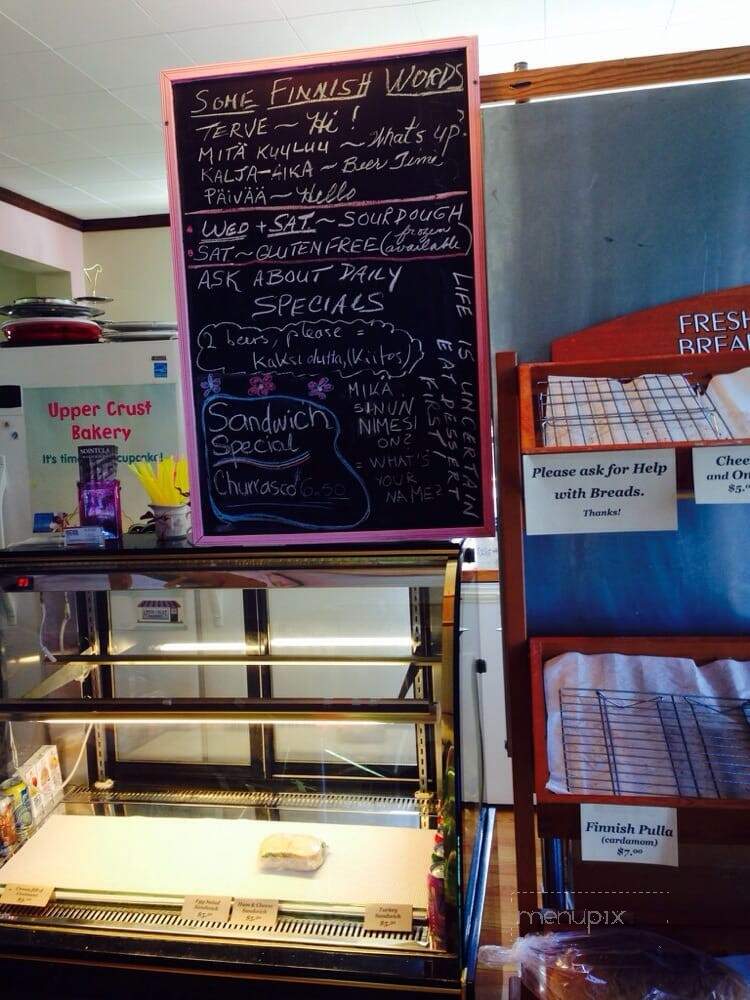 SOME FINNISH WORDS
TERVE ~ Hi!
MITÄ KUULUU ~ What's up?
KALJA-AIKA ~ Beer Time
PÄIVÄÄ ~ Hello
WED + SAT ~ SOURDOUGH
SAT ~ GLUTEN FREE (frozen available)
ASK ABOUT DAILY
SPECIALS
2 beers, please =
Kaksi olutta, (Kiitos)
LIFE IS UNCERTAIN
EAT DESSERT
FIRST!
MIKA
SINUN
NIMESI
ON?
= WHAT'S
YOUR
NAME?
Sandwich
Special
Churrasco 6.50
Upper Crust
Bakery
It's time cupcake!
FRESH
BREA
Please ask for Help
with Breads.
Thanks!
Chee
and On
$5.
Finnish Pulla
(cardamom)
$7.00
Egg Salad
Sandwich
Ham & Cheese
Sandwich
Turkey
Sandwich
menupix